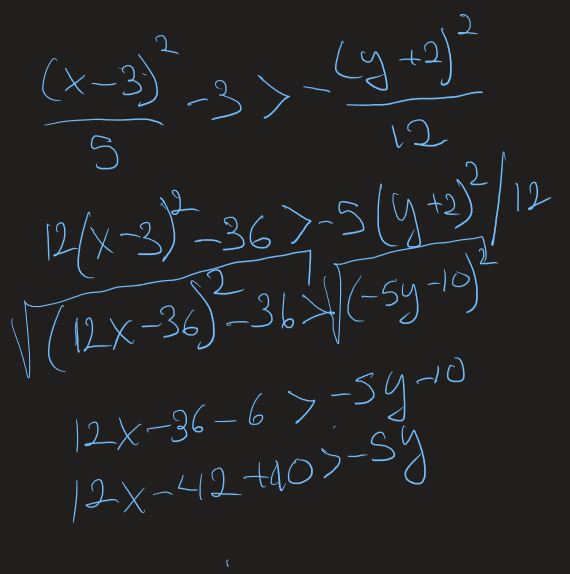 (x-3)²/5 - 3 > -(y+2)²/12
12(x-3)² - 36 > -5(y+2)² / 12
√((12x-36)² - 36) > √((-5y-10)²)
12x-36-6 > -5y-10
12x-42+10 > -5y